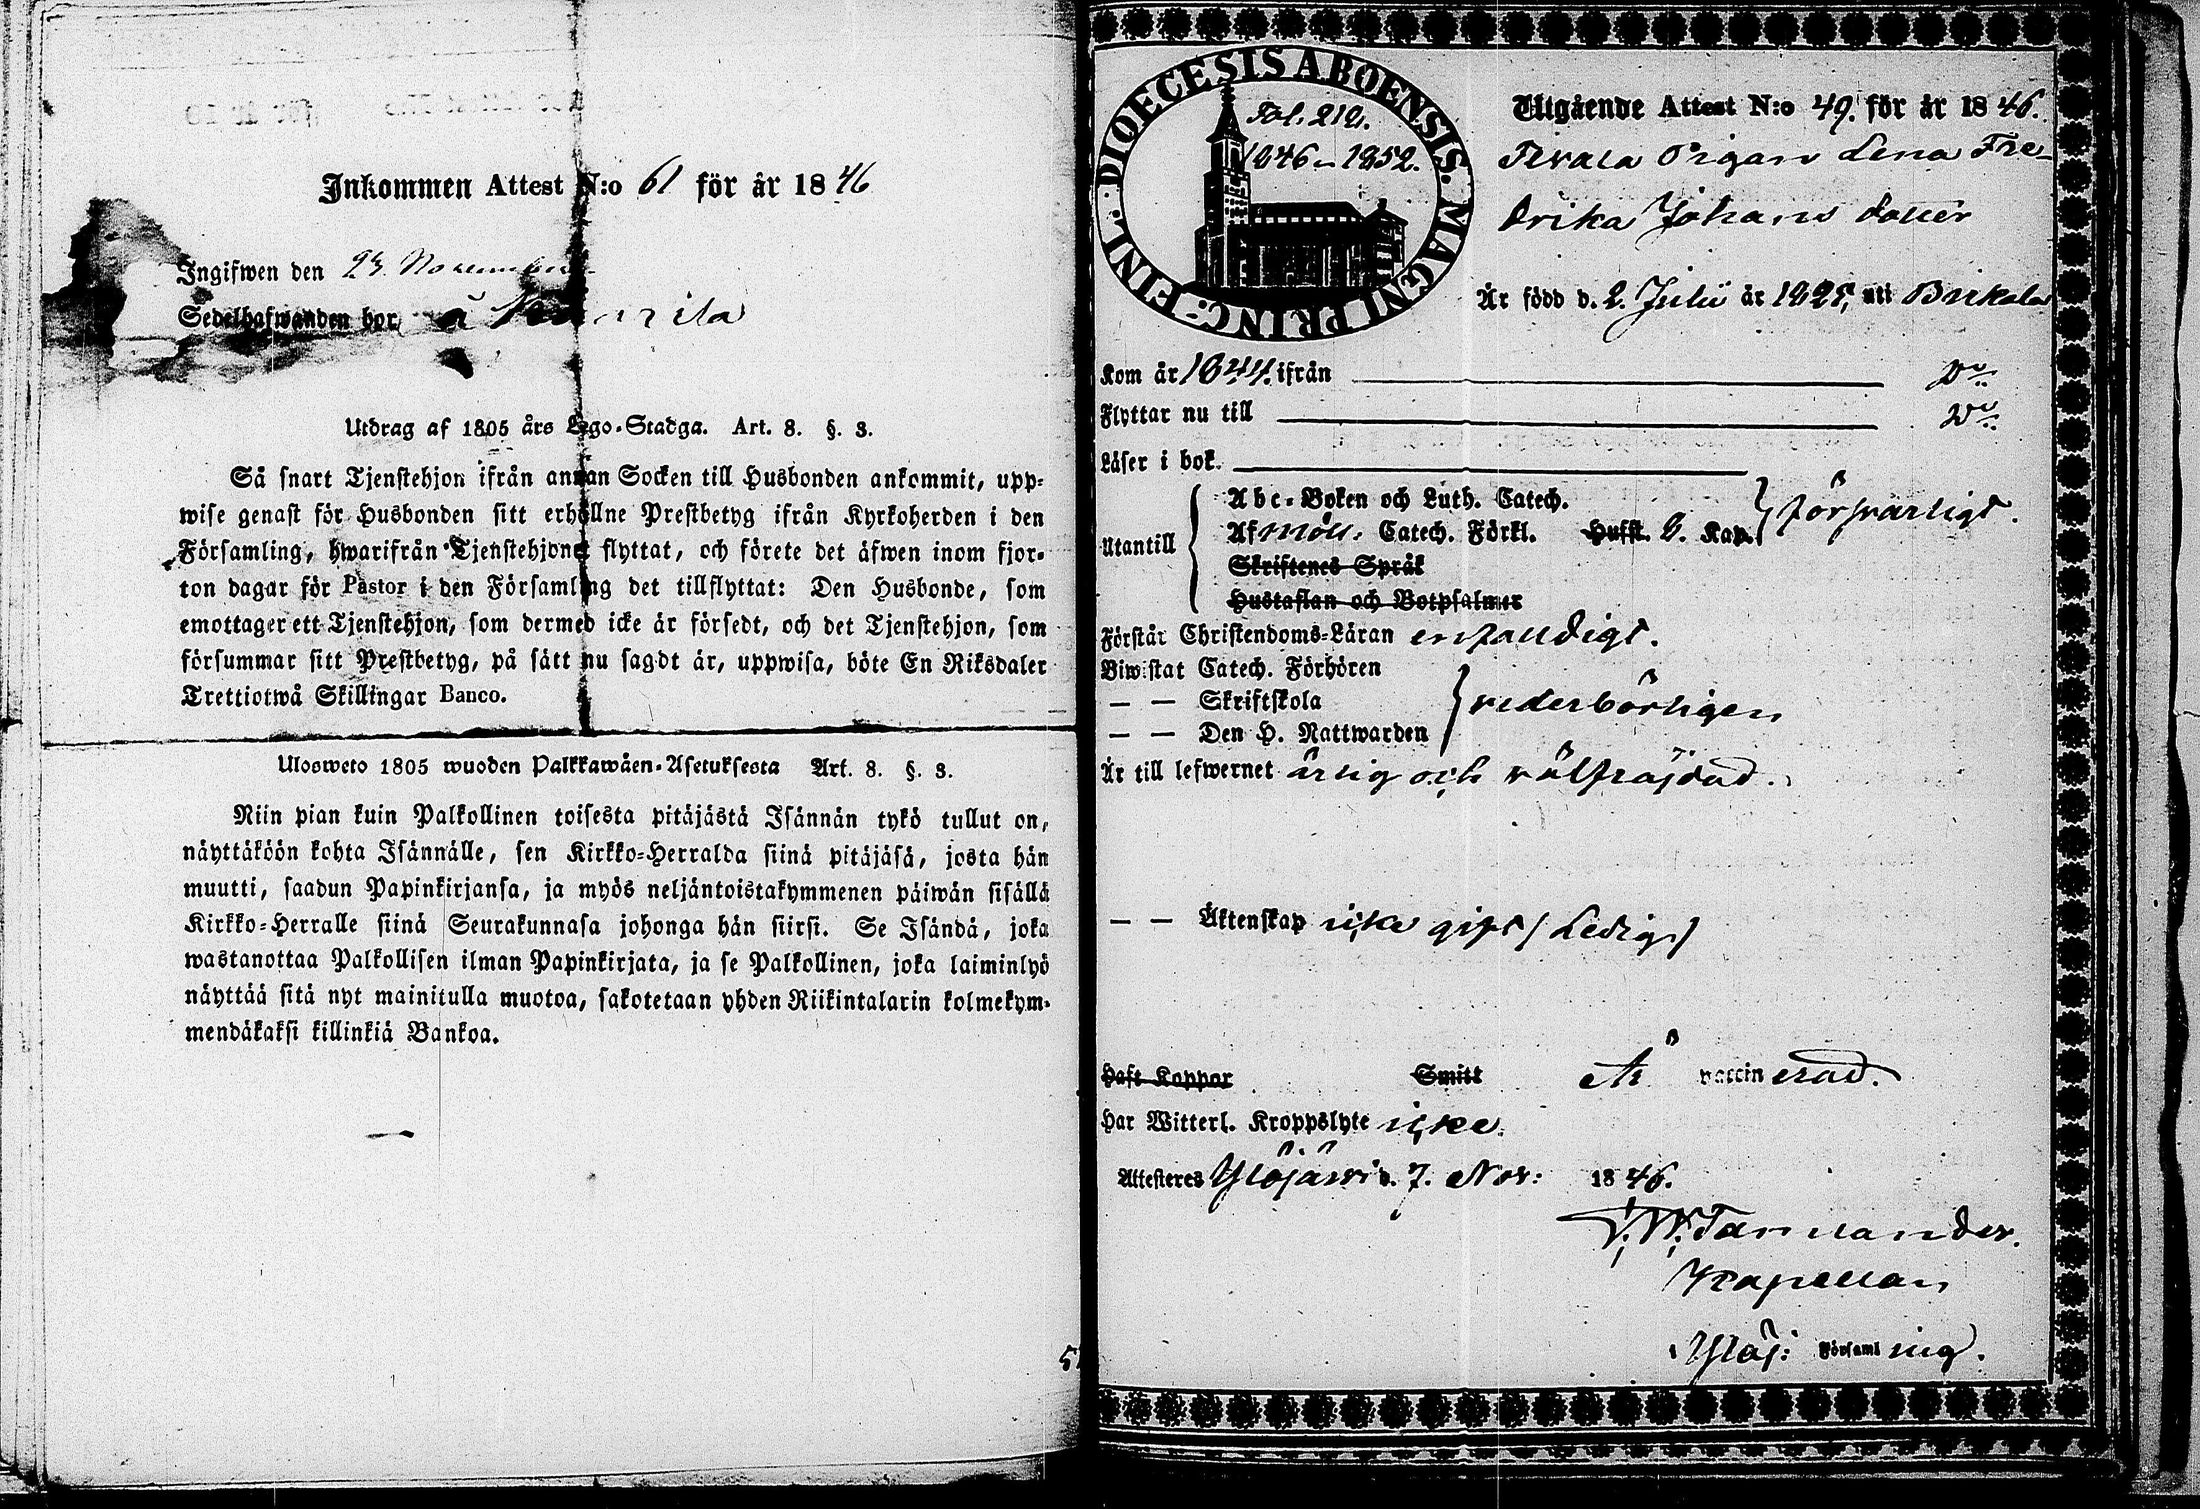 Inkommen Attest N:o 61 för år 1846
Ingifwen den 23. November
Sedelhafwanden bor å
Utdrag af 1805 års Lego-Stadga. Art. 8. §. 3.
Så snart Tjenstehjon ifrån annan Socken till Husbonden ankommit, upp-
wise genast för Husbonden sitt erhållne Prestbetyg ifrån Kyrkoherden i den
Församling, hwarifrån Tjenstehjonet flyttat, och förete det äfwen inom fjor-
ton dagar för Pastor i den Församling det tillflyttat: Den Husbonde, som
emottager ett Tjenstehjon, som dermed icke är försedt, och det Tjenstehjon, som
försummar sitt Prestbetyg, på sätt nu sagdt är, uppwisa, böte En Riksdaler
Trettiotwå Skillingar Banco.
Ulosweto 1805 wuoden Palkkawäen-Asetuksesta Art. 8. §. 3.
Niin pian kuin Palkollinen toisesta pitäjästä Isännän tykö tullut on,
näyttäköön kohta Isännälle, sen Kirkko-Herralda siinä pitäjäsä, josta hän
muutti, saadun Papinkirjansa, ja myös neljäntoistakymmenen päiwän sisällä
Kirkko-Herralle siinä Seurakunnasa johonga hän siirsi. Se Isändä, joka
wastanottaa Palkollisen ilman Papinkirjata, ja se Palkollinen, joka laiminlyö
näyttää sitä nyt mainitulla muotoa, sakotetaan yhden Riikintalarin kolmekym-
mendäkaksi killinkiä Bankoa.
DIOECESIS ABOENSIS. MAGNI PRINC: FINL.
Fol. 212.
1846–1852.
Utgående Attest N:o 49. för år 1846.
Pigan Lena Fre-
drika Johans dotter
Är född d. 2. Julii år 1825, uti Birkala
Kom år 1844. ifrån Do
Flyttar nu till Do
Läser i bok.
Utantill
Abc-Boken och Luth. Catech.
Af Möll. Catech. Förkl. Hufst. 8. Kap. försvarligt.
Skriftenes Språk
Hustaflan och Botpsalmer
Förstår Christendoms-Läran enfaldigt.
Biwistat Catech. Förhören
— — Skriftskola
— — Den H. Nattwarden
vederbörligen
Är till lefwernet ärlig och välfräjdad.
— — Äktenskap icke gift (Ledig)
Haft Koppor Smitt Är vaccinerad.
Har Witterl. Kroppslyte icke.
Attesteres Ylöjärvi d. 7. Nov: 1846.
Kapellan
Ylöj: Församling.